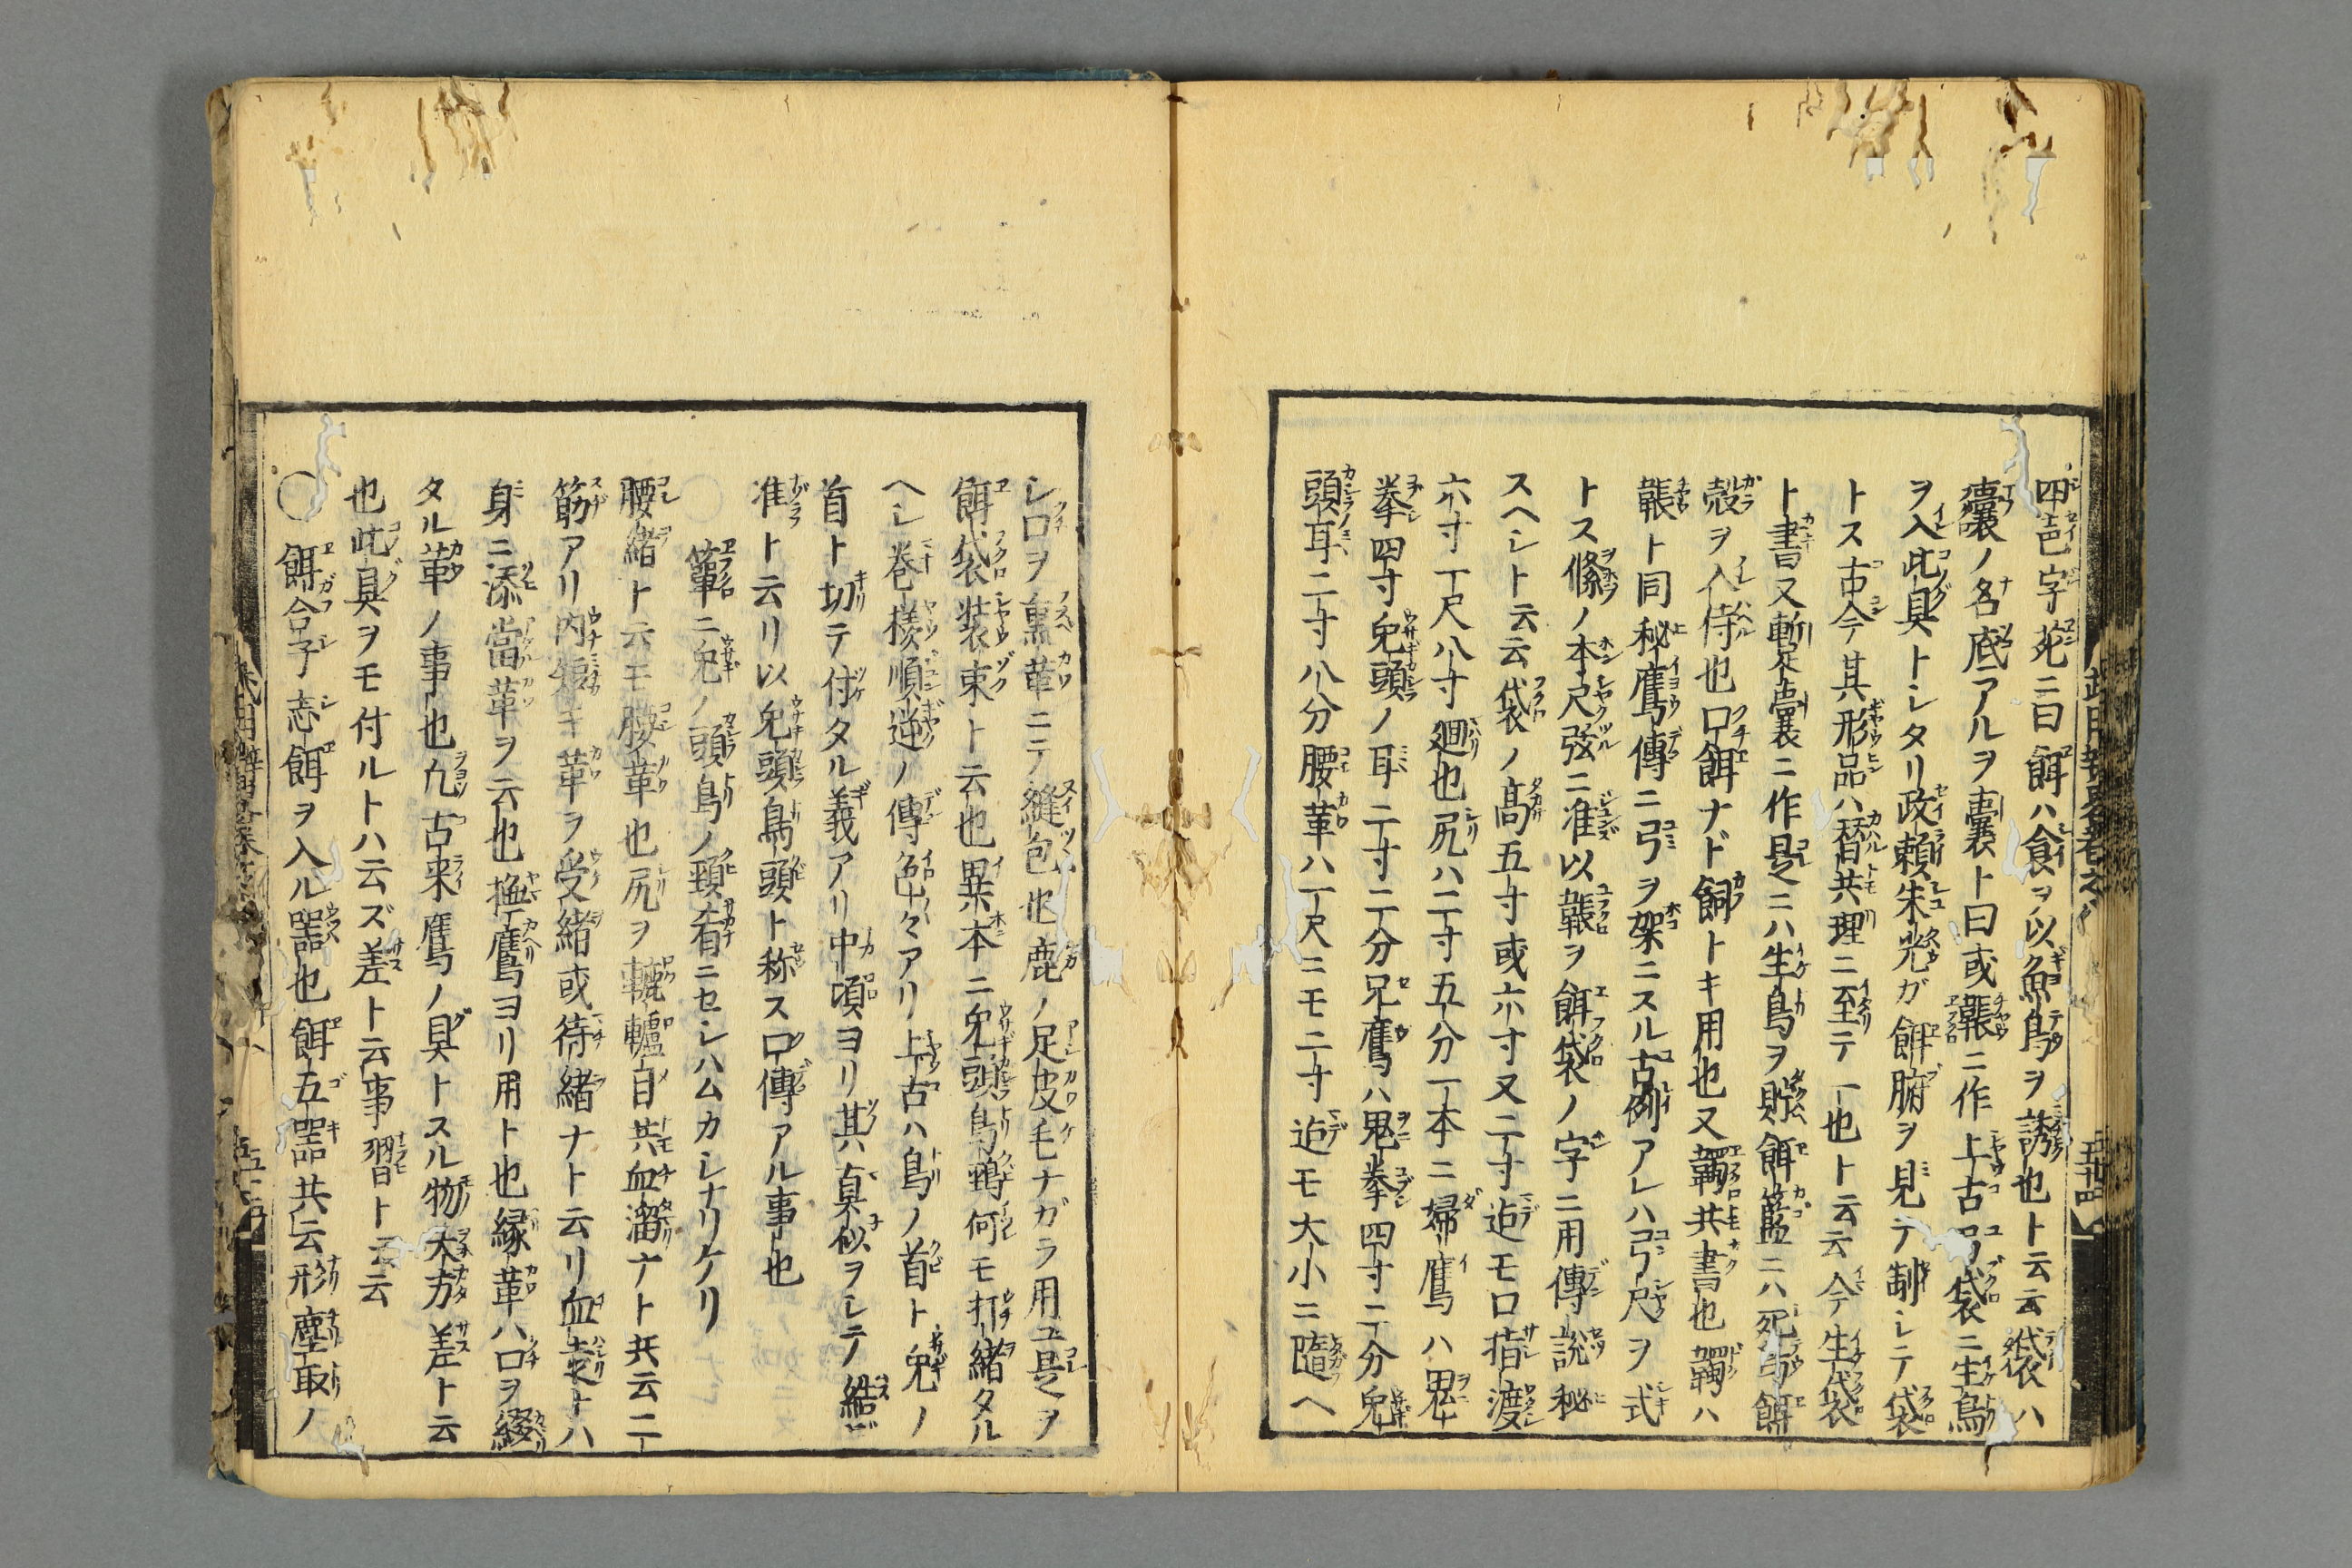 四邑字苑ニ曰餌ハ食ヲ以魚鳥ヲ誘也ト云云袋ハ
囊ノ名底アルヲ囊ト曰或韔ニ作上古弓袋ニ生鳥
ヲ入此具トシタリ政頼朱光ガ餌腑ヲ見テ制シテ袋
トス古今其形品ハ替共理ニ至テ一也ト云云今生袋
ト書又暫囊ニ作是ニハ生鳥ヲ貯餌籃ニハ死鳥餌
殻ヲ入侍也口餌ナド飼トキ用也又韣共書也韣ハ
韔ト同秘鷹傳ニ弓ヲ架ニスル古例アレハ弓尺ヲ式
トス絛ノ本尺弦ニ准以韔ヲ餌袋ノ字ニ用傳説秘
スヘシト云云袋ノ高五寸或六寸又二寸迠モ口指渡
六寸一尺八寸廻也尻ハ二寸五分一本ニ婦鷹ハ鬼
拳四寸兔頭ノ耳二寸二分兄鷹ハ鬼拳四寸二分兔
頭耳二寸八分腰革ハ一尺ニモ二寸迠モ大小ニ隨ヘ
シ口ヲ熏革ニテ縫包也鹿ノ足皮毛ナガラ用ユ是ヲ
餌袋装束ト云也異本ニ兔頭鳥頸何モ打緒タル
ヘシ巻樣順逆ノ傳色々アリ上古ハ鳥ノ首ト兔ノ
首ト切テ付タル義アリ中頃ヨリ其真似ヲシテ結ビ
准ト云リ以兔頭鳥頭ト称ス口傳アル事也
ニ兔ノ頭鳥ノ頸肴ニセシハムカシナリケリ
腰緒ト云モ腰革也尻ヲ轆轤目共血溜ナト共云二
筋アリ内短キ革ヲ受緒或待緒ナト云リ血走トハ
身ニ添當革ヲ云也撫鷹ヨリ用ト也縁革ハ口ヲ綴
タル革ノ事也凢古来鷹ノ具トスル物大方差ト云
也此具ヲモ付ルトハ云ズ差ト云事習ト云云
○餌合子志餌ヲ入ル噐也餌五噐共云形塵取ノ